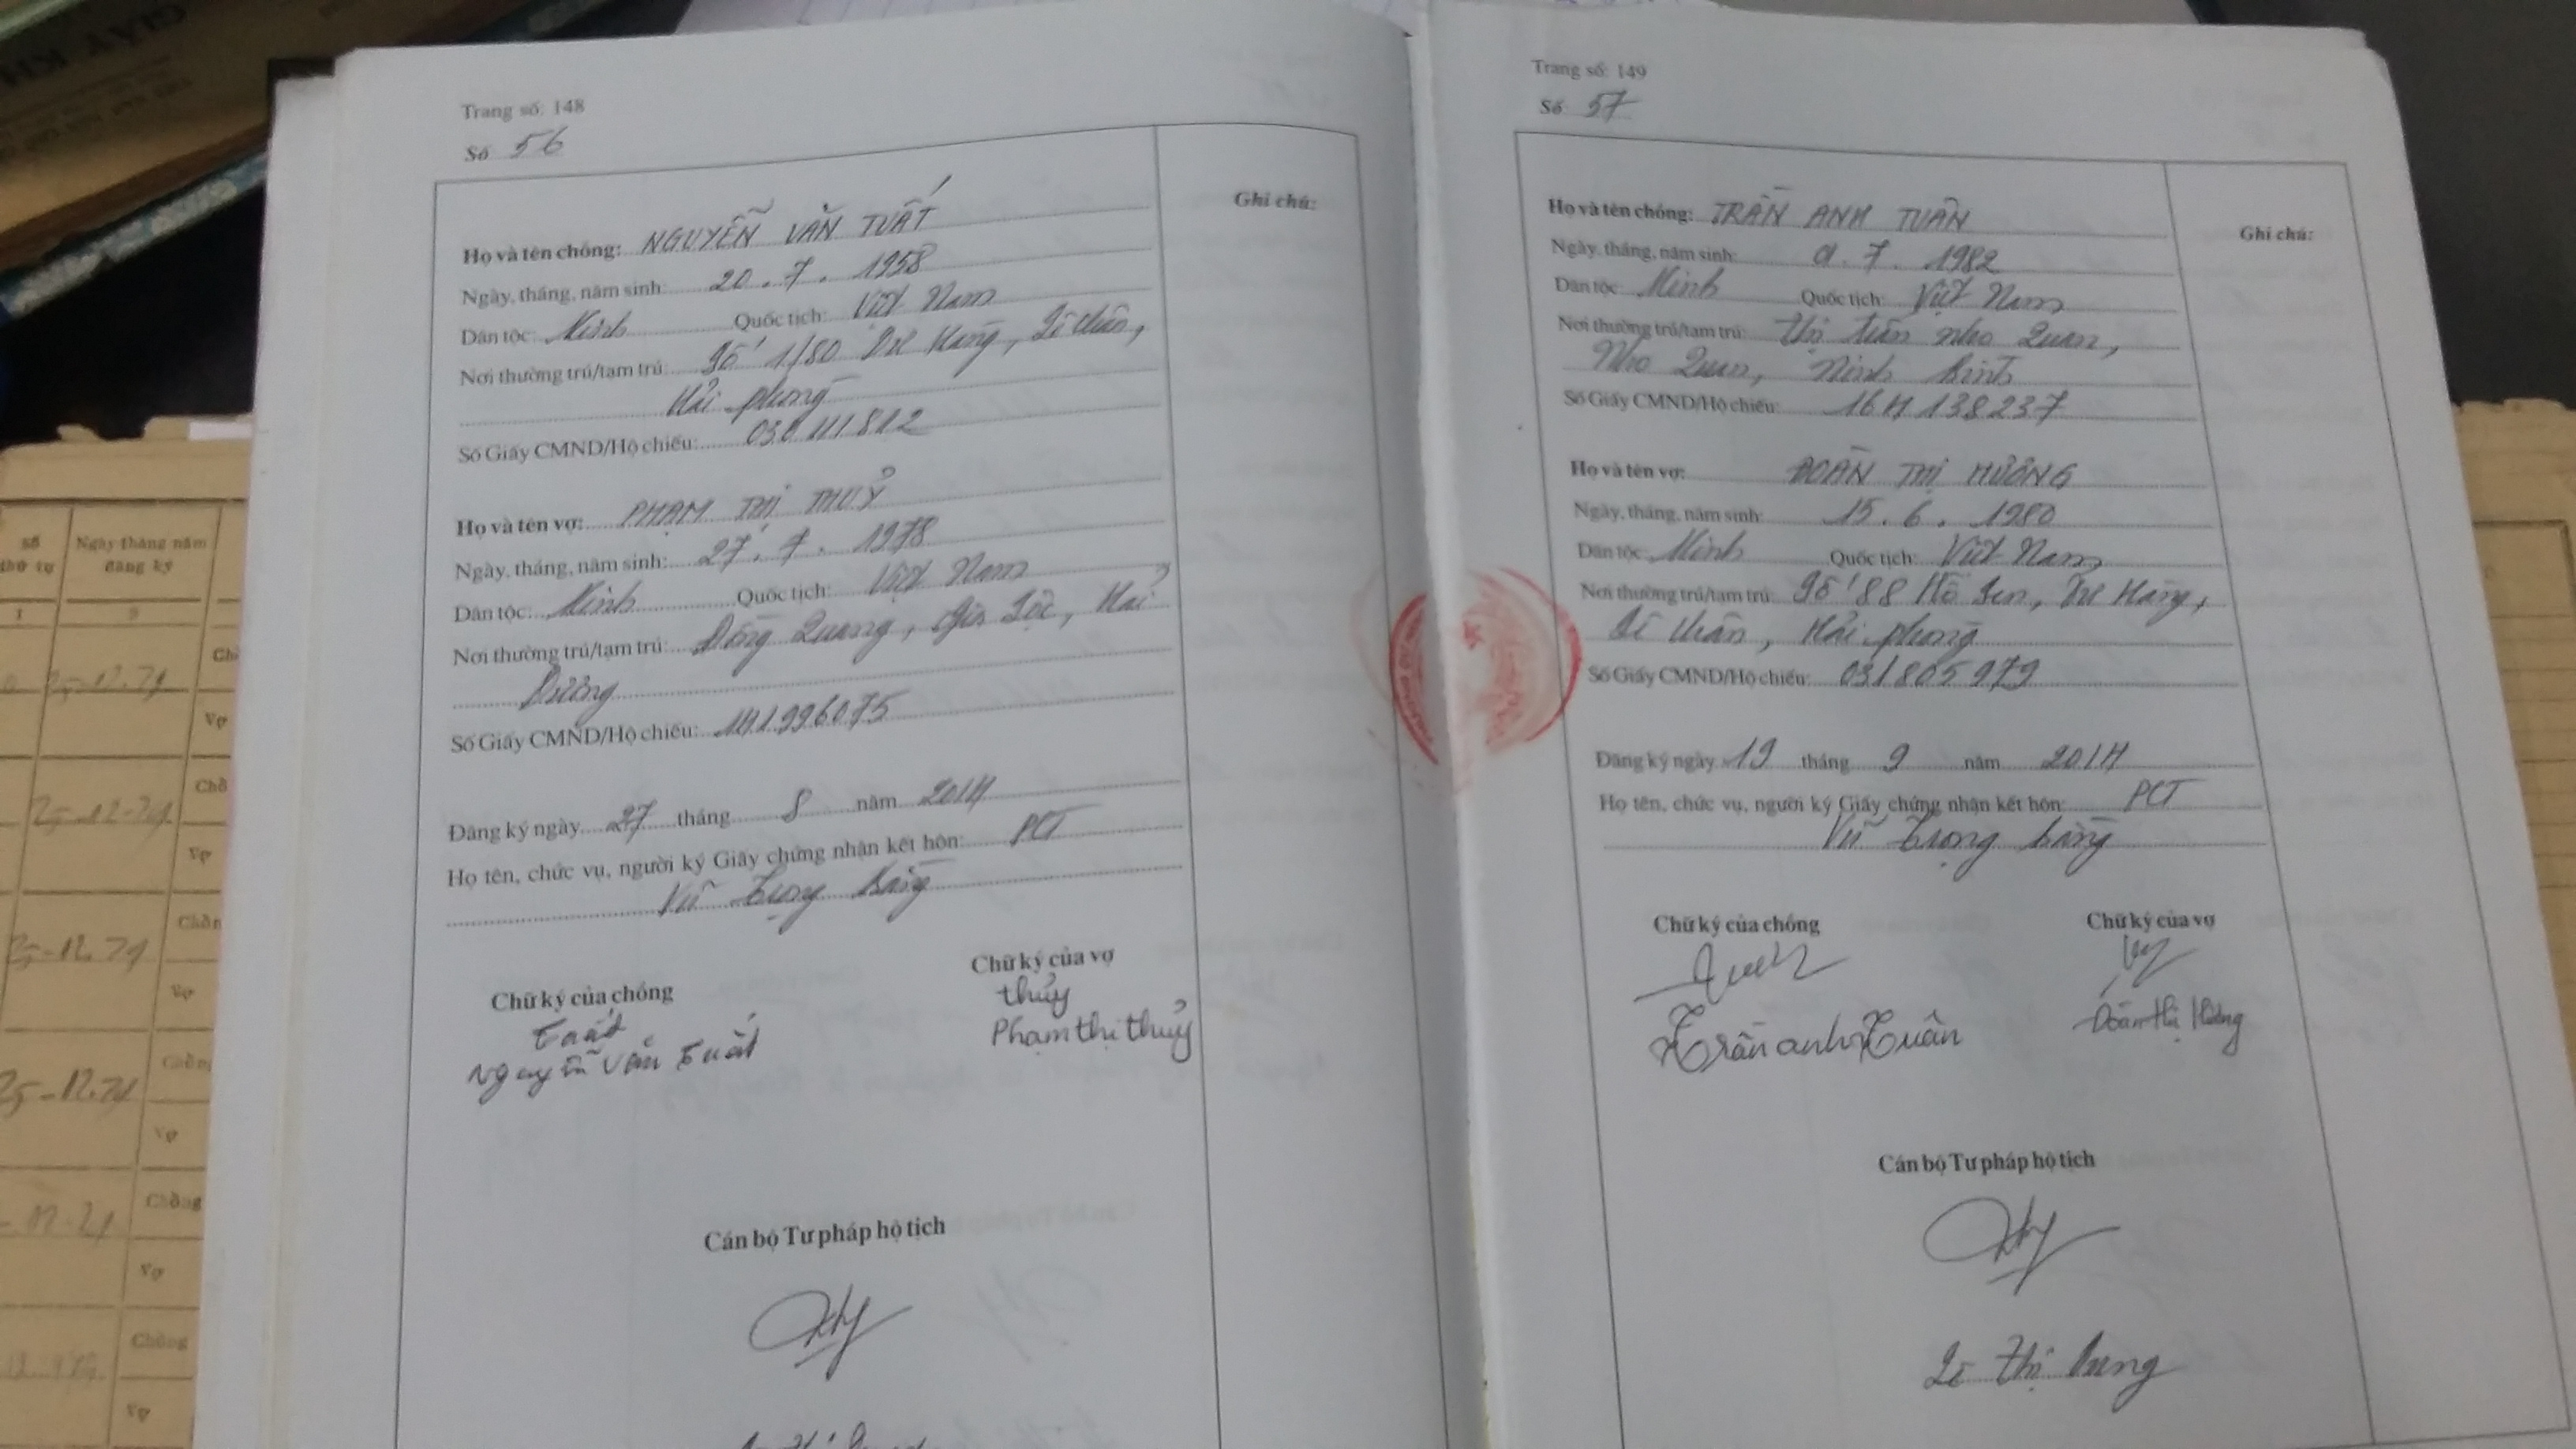 Trang số: 148
Số 56
Ghi chú:
Họ và tên chồng: NGUYỄN VĂN TUẤT
Ngày, tháng, năm sinh: 20.7.1958
Dân tộc: Kinh Quốc tịch: Việt Nam
Nơi thường trú/tạm trú: Số 1/80 Dư Hàng, Lê Chân,
Hải phòng
Số Giấy CMND/Hộ chiếu:
Họ và tên vợ: PHẠM THỊ THUỶ
Ngày, tháng, năm sinh: 27.7.1978
Dân tộc: Kinh Quốc tịch: Việt Nam
Nơi thường trú/tạm trú: Đồng Quang, Gia Lộc, Hải
Dương
Số Giấy CMND/Hộ chiếu: 141996075
Đăng ký ngày 27 tháng 8 năm 2014
Họ tên, chức vụ, người ký Giấy chứng nhận kết hôn: PCT
Vũ Trọng Bằng
Chữ ký của chồng
Tuất
Nguyễn Văn Tuất
Chữ ký của vợ
thủy
Phạm thị thủy
Cán bộ Tư pháp hộ tịch
Trang số: 149
Số 57
Ghi chú:
Họ và tên chồng: TRẦN ANH TUẤN
Ngày, tháng, năm sinh: 7.1982
Dân tộc: Kinh Quốc tịch: Việt Nam
Nơi thường trú/tạm trú: Thị trấn nho Quan,
Nho Quan, Ninh Bình
Số Giấy CMND/Hộ chiếu: 164138237
Họ và tên vợ: ĐOÀN THỊ HƯỜNG
Ngày, tháng, năm sinh: 15.6.1980
Dân tộc: Kinh Quốc tịch: Việt Nam
Nơi thường trú/tạm trú: Số 88 Hồ Sen, Dư Hàng,
Lê Chân, Hải phòng
Số Giấy CMND/Hộ chiếu: 031805979
Đăng ký ngày 19 tháng 9 năm 2014
Họ tên, chức vụ, người ký Giấy chứng nhận kết hôn: PCT
Vũ Trọng Bằng
Chữ ký của chồng
Trần anh Tuân
Chữ ký của vợ
Đoàn Thị Hường
Cán bộ Tư pháp hộ tịch
Lê Thị Dung
số
thứ tự
Ngày tháng năm
đăng ký
1
2
Vợ
Vợ
Vợ
Vợ
Chồng
Vợ
Chồng
Vợ